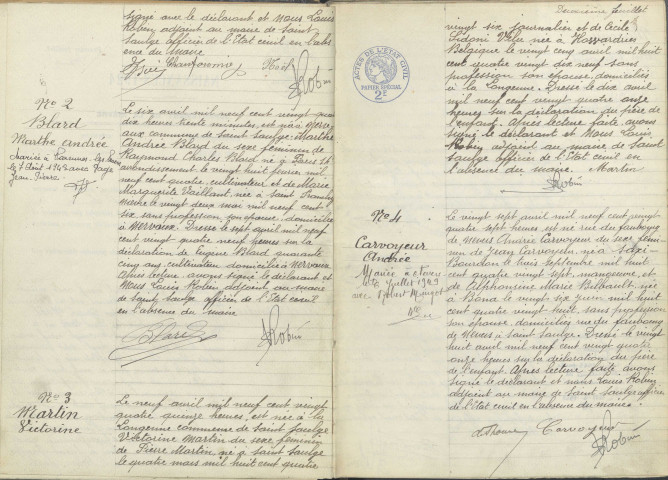 signé avec le déclarant et Nous Louis
Robin adjoint au maire de Saint
Saulge officier de l'Etat civil en l'abs
ence du Maire
Robin
N° 2
Blard
Marthe Andrée
Mariée à
le 7 Août 1943 avec
Jean Pierre
Le six avril mil neuf cent vingt quatre
dix heures trente minutes, est née à
commune de Saint Saulge Marthe
Andrée Blard du sexe féminin
de Raymond Charles Blard né à Paris
arrondissement le vingt huit février mil
neuf cent quatre cultivateur et de Marie
Marguerite Vaillant née à Saint
le vingt deux mai mil neuf cent
six sans profession, son épouse, domiciliés
à Dressé le sept avril mil neuf
cent vingt-quatre neuf heures sur la
déclaration de Eugène Blard quarante
cinq ans, cultivateur domicilié à
Après lecture avons signé le déclarant et
Nous Louis Robin adjoint au maire
de Saint Saulge officier de l'Etat civil
en l'absence du maire
Blard Robin
N° 3
Martin
Victorine
Le neuf avril mil neuf cent vingt
quatre quinze heures, est née à la
Longenne commune de Saint Saulge
Victorine Martin du sexe féminin
de Pierre Martin, né à Saint Saulge
le quatre mars mil huit cent quatre
Deuxième feuillet
vingt six journalier et de Cécile
née à
Belgique le vingt cinq avril mil huit
cent quatre vingt dix neuf sans
profession son épouse, domiciliés
à la Longenne. Dressé le dix avril
mil neuf cent vingt quatre onze
heures sur la déclaration du père
de l'enfant. Après lecture faite, avons
signé le déclarant et Nous Louis
Robin adjoint au maire de Saint
Saulge officier de l'Etat civil en
l'absence du maire. Martin
Robin
ACTES DE L'ETAT CIVIL
PAPIER SPÉCIAL
2E
N° 4
Carvoyeur
Andrée
Mariée à
le Juillet 1949
avec
Le vingt sept avril mil neuf cent vingt
quatre sept heures, est né rue du faubourg
de Andrée Carvoyeur du sexe fémi
nin de Jean Carvoyeur, né à Saxi-
Bourdon le trois Septembre mil huit
cent quatre vingt sept, manoeuvre, et
de Alphonsine Marie née
à Bona le vingt six juin mil huit
cent quatre vingt huit, sans profession
son épouse, domiciliés rue du faubourg
de à Saint Saulge. Dressé le vingt
huit avril mil neuf cent vingt quatre
onze heures sur la déclaration du père
de l'enfant. Après lecture faite avons
signé le déclarant et nous Louis Robin
adjoint au maire de Saint Saulge officier
de l'Etat civil en l'absence du maire.
Carvoyeur
Robin